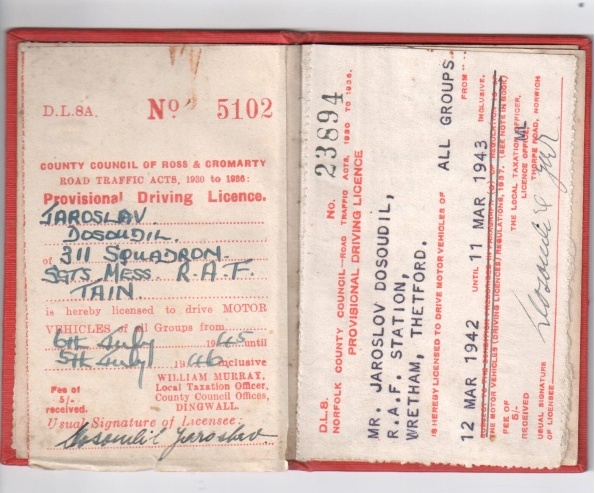 D.L.8A. No 5102
COUNTY COUNCIL OF ROSS & CROMARTY
ROAD TRAFFIC ACTS, 1930 to 1936:
Provisional Driving Licence.
JAROSLAV
DOSOUDIL
of 311 SQUADRON.
SGTS MESS. R.A.F.
TAIN.
is hereby licensed to drive MOTOR
VEHICLES of all Groups from
6th July 1945 until
5th July 1946 inclusive
Fee of
5/-
received.
WILLIAM MURRAY,
Local Taxation Officer,
County Council Offices,
DINGWALL.
Usual Signature of Licensee:
Dosoudil Jaroslav
D.L.8. No. 23894
NORFOLK COUNTY COUNCIL—ROAD TRAFFIC ACTS, 1930 TO 1936.
PROVISIONAL DRIVING LICENCE
MR. JAROSLOV DOSOUDIL,
R.A.F. STATION,
WRETHAM, THETFORD.
IS HEREBY LICENSED TO DRIVE MOTOR VEHICLES OF ALL GROUPS. FROM
12 MAR 1942 UNTIL 11 MAR 1943 INCLUSIVE,
THE MOTOR VEHICLES (DRIVING LICENCES) REGULATIONS, 1937. (SEE NOTES IN BOOK)
FEE OF
5/-
RECEIVED
THE LOCAL TAXATION OFFICER,
LICENCE OFFICE,
THORPE ROAD, NORWICH
USUAL SIGNATURE
OF LICENSEE
Dosoudil Jar